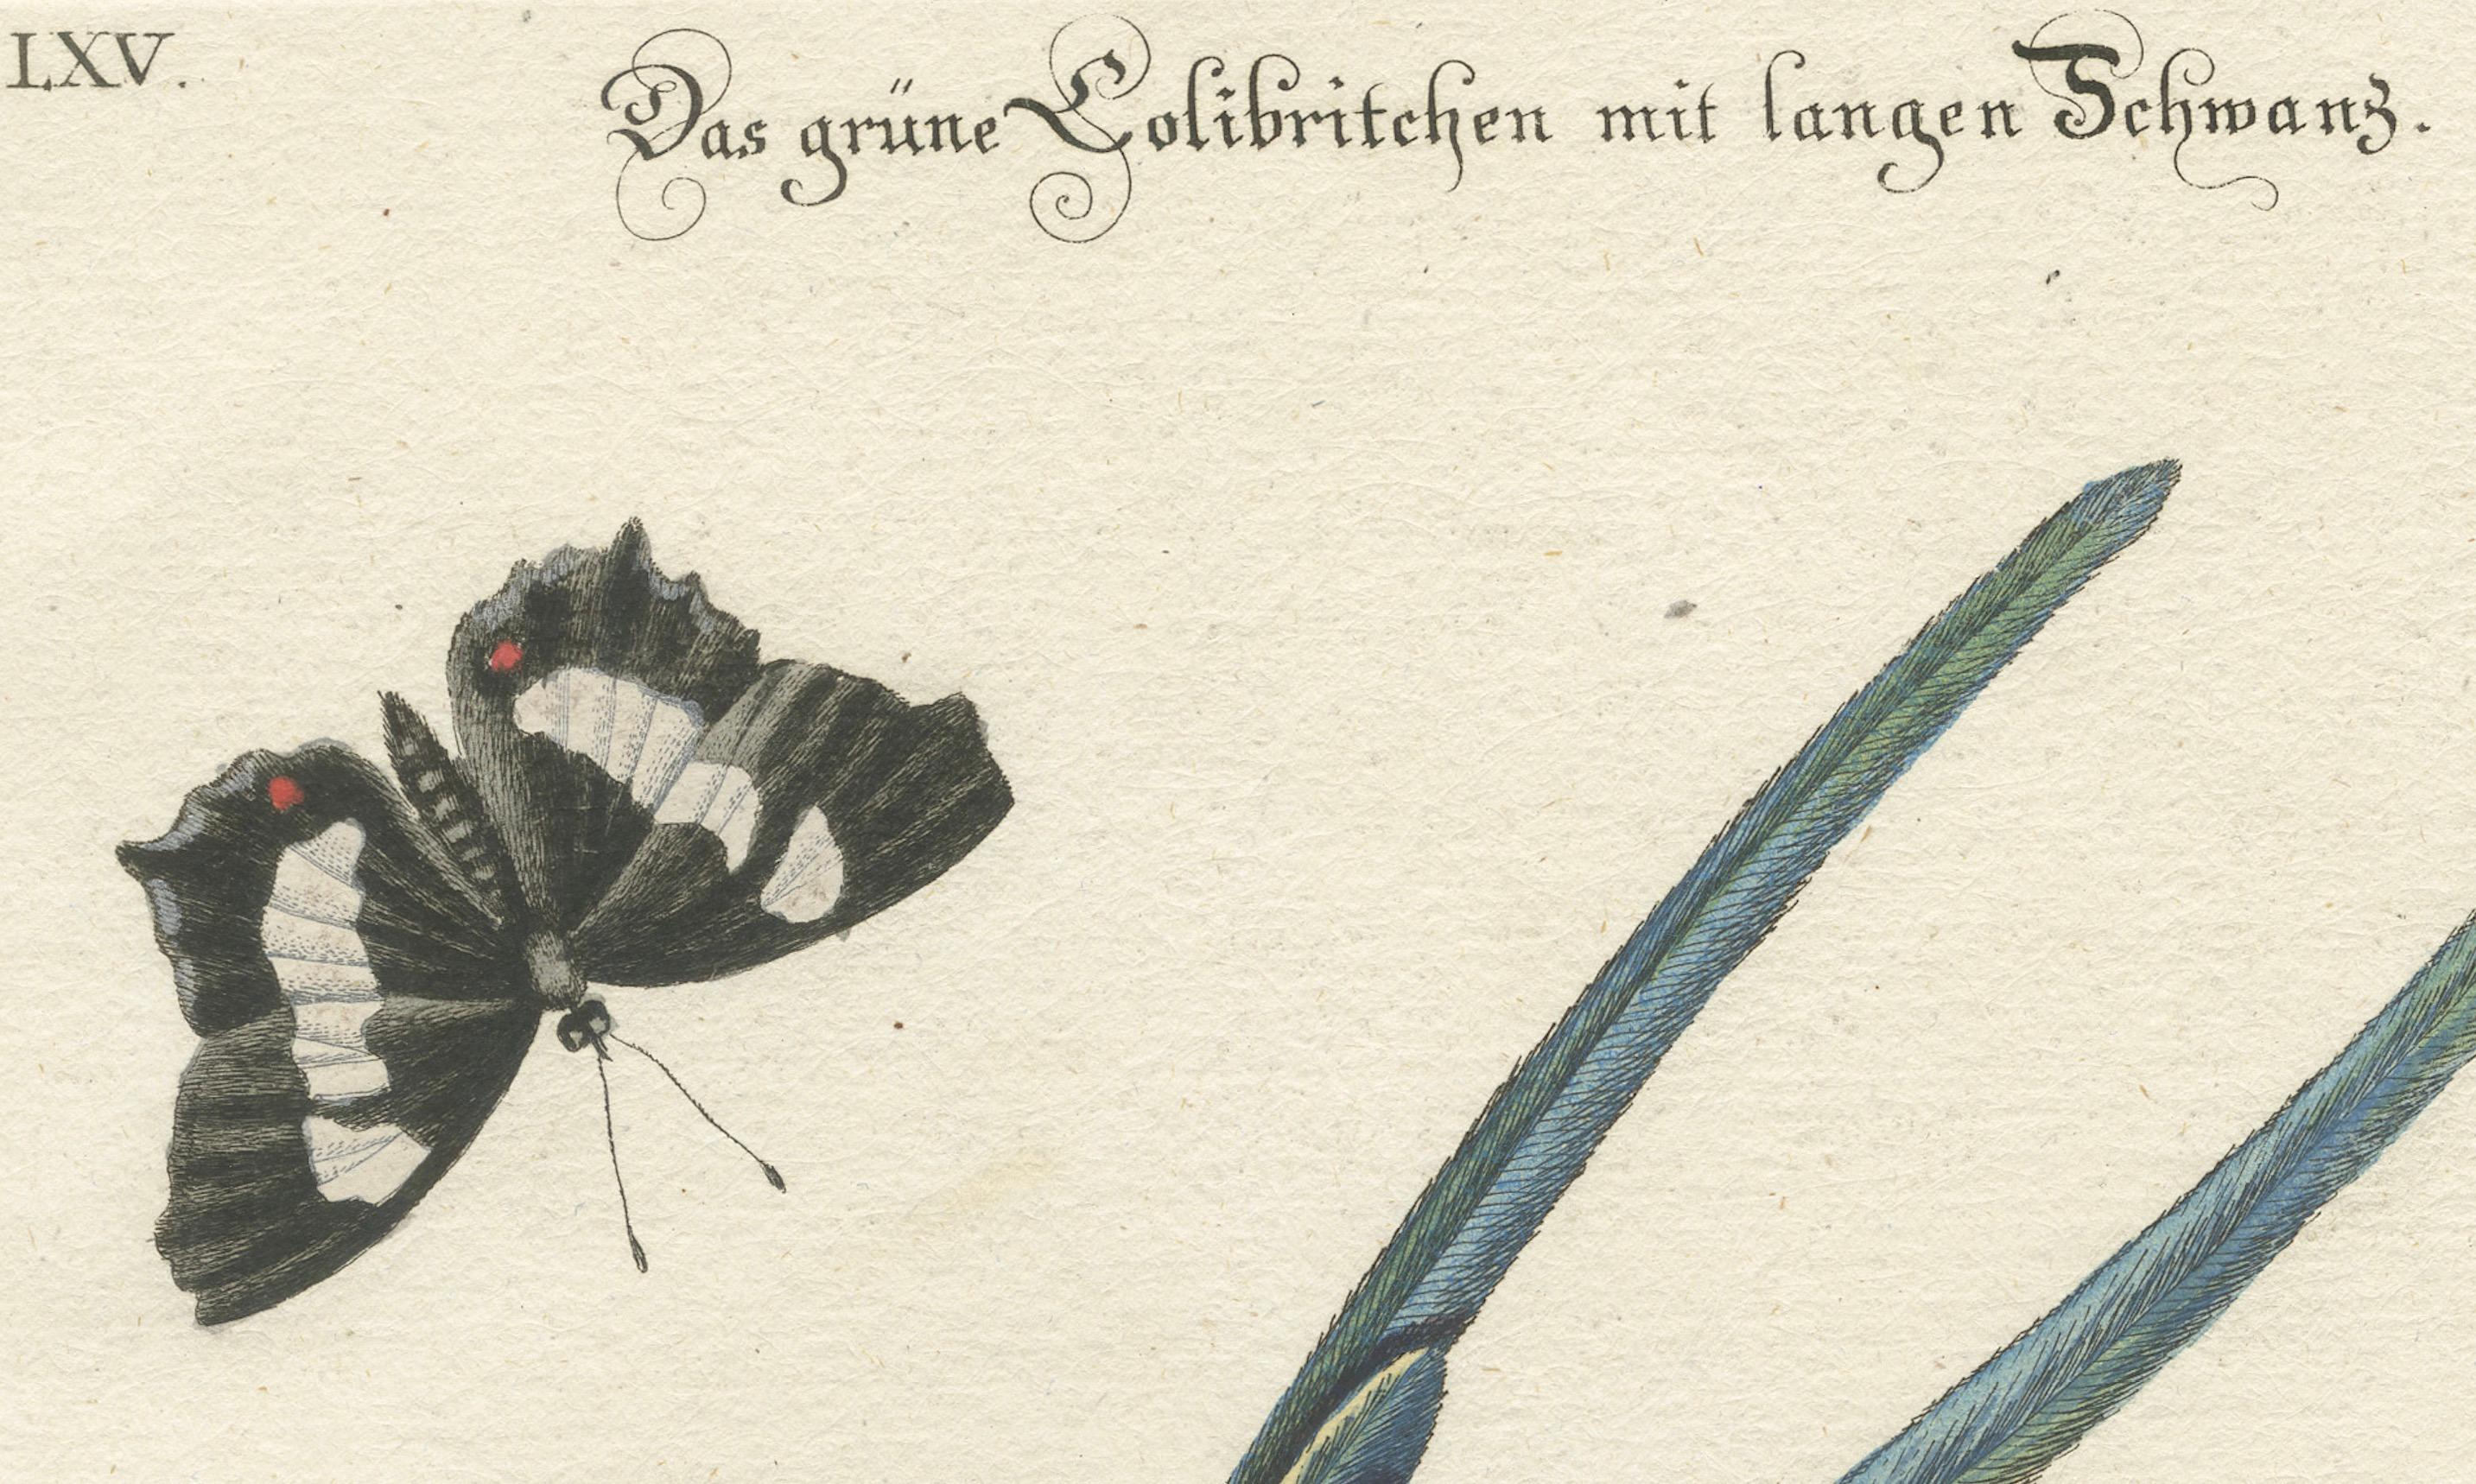 LXV. Das grüne Colibritchen mit langen Schwanz.